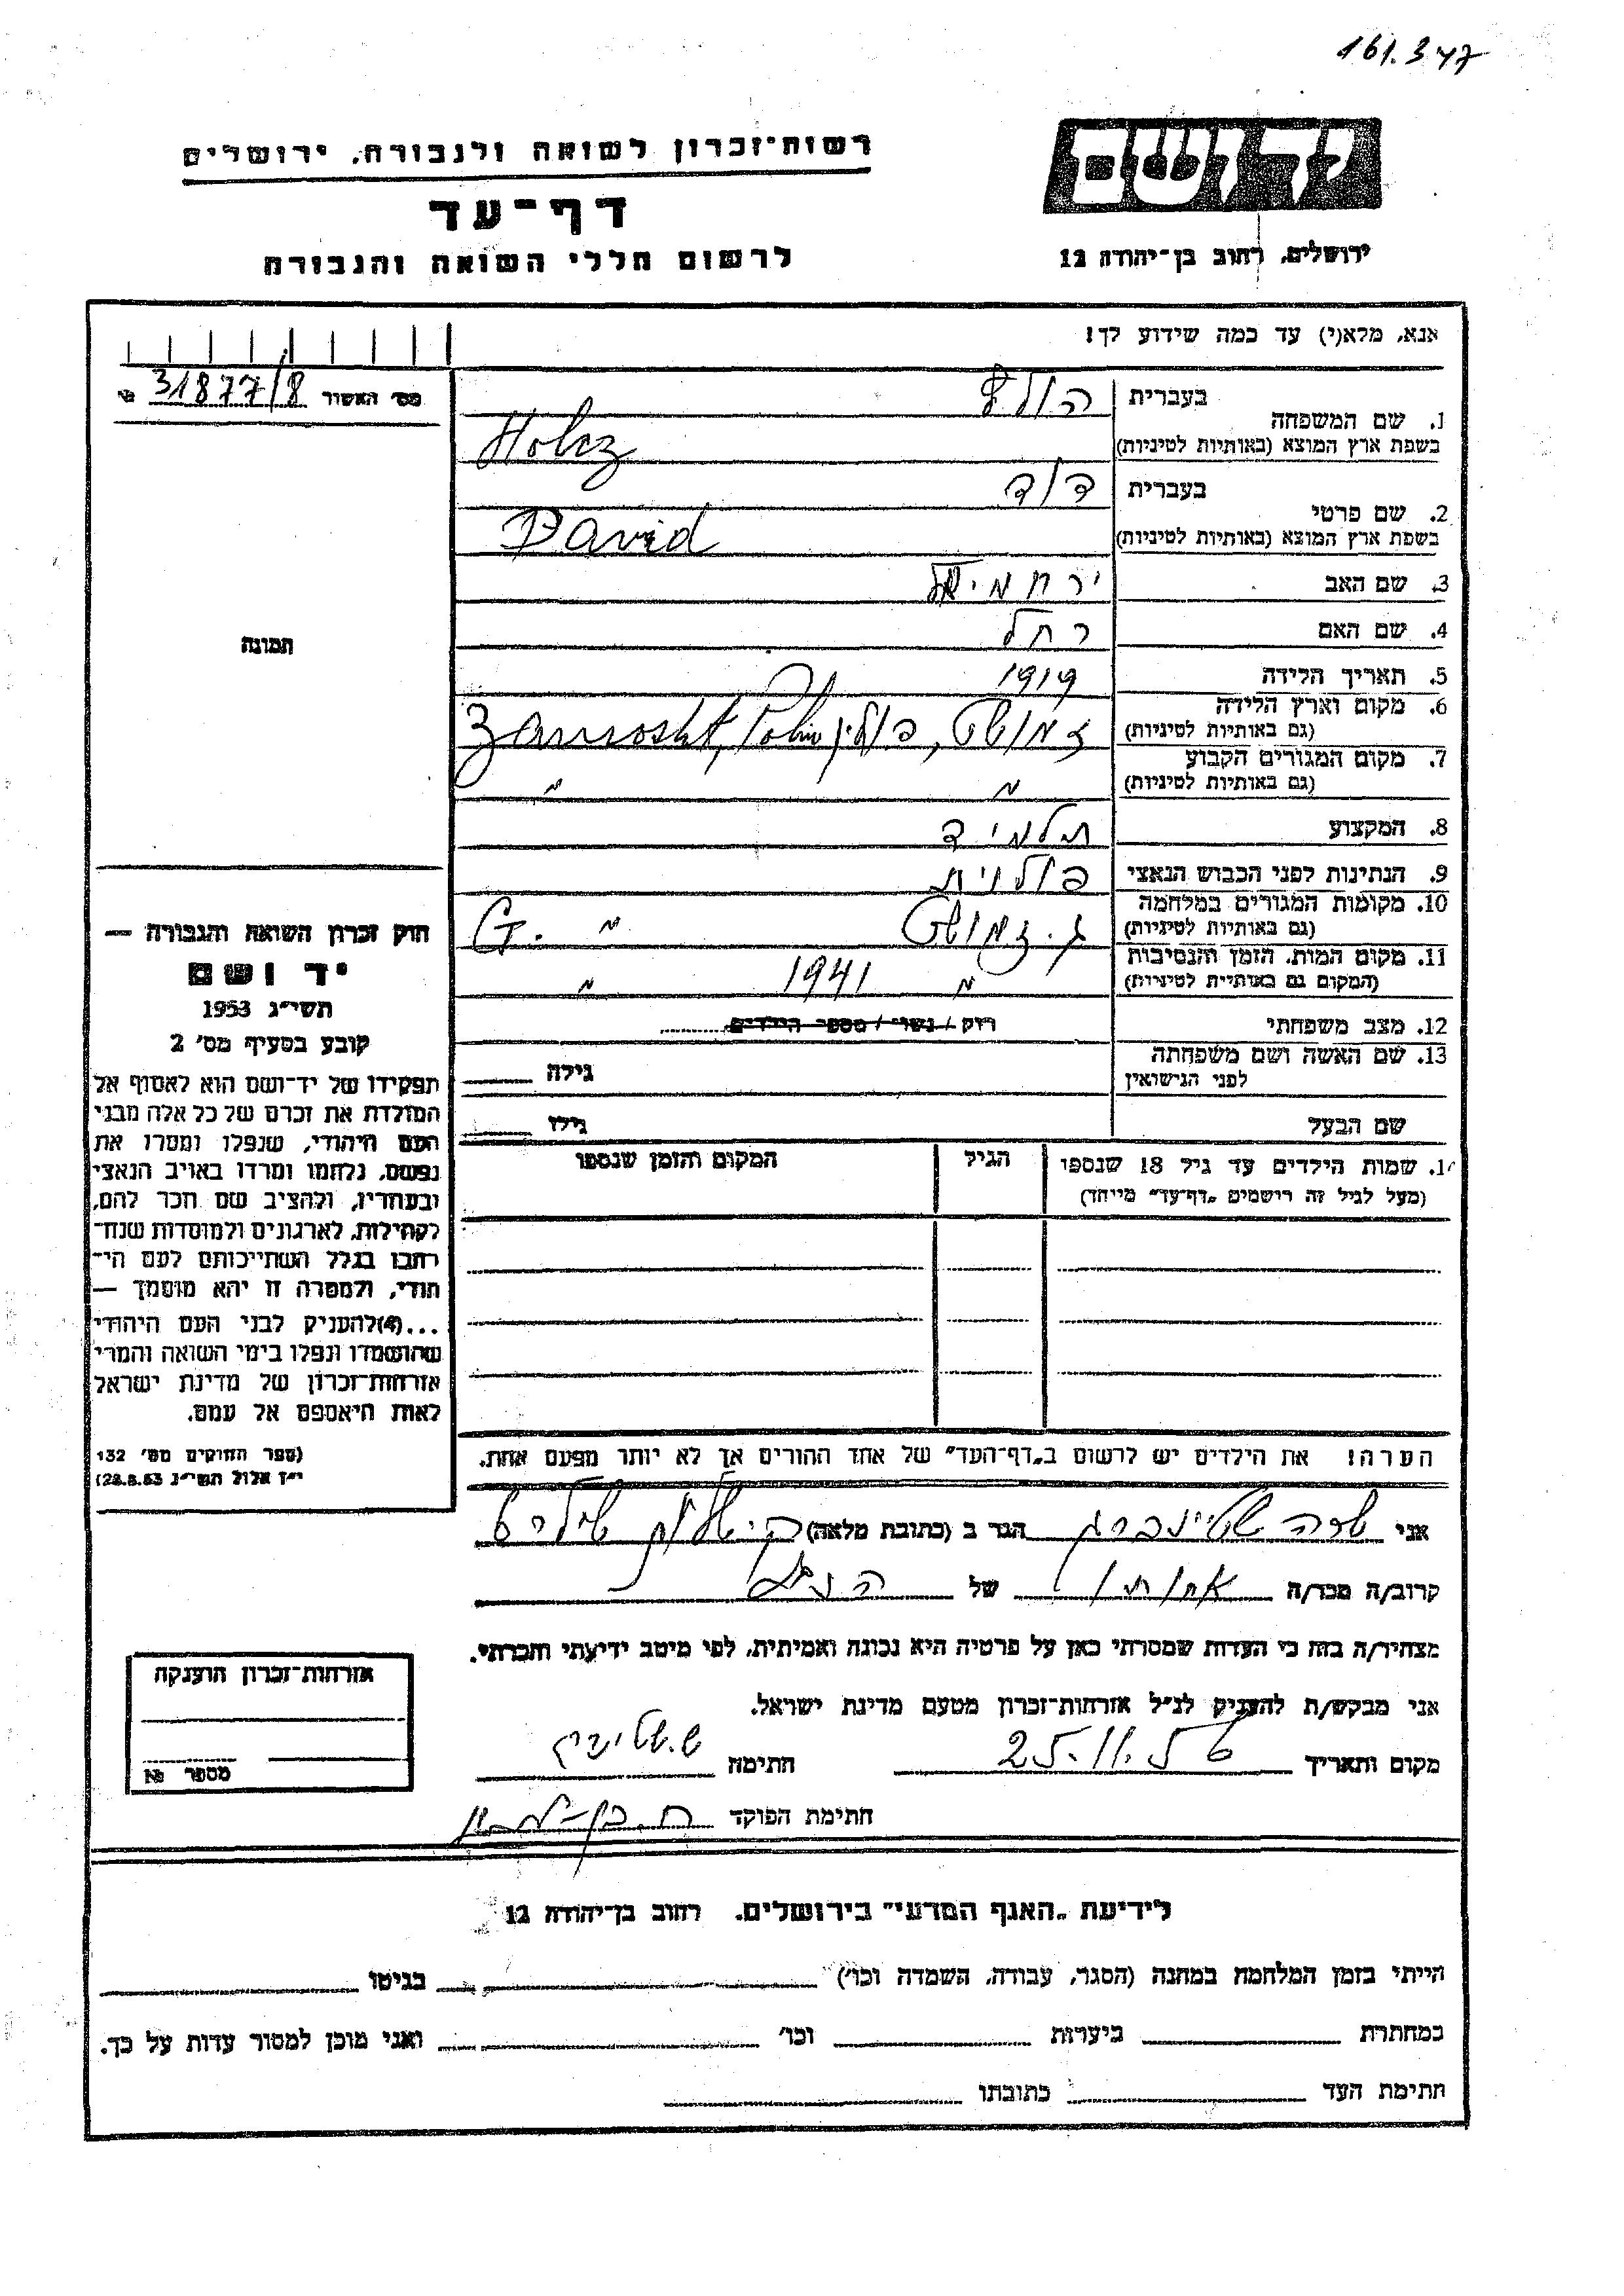 161.347
רשות־זכרון לשואה ולגבורה, ירושלים
יד ושם
דף־עד
לרשום חללי השואה והגבורה
ירושלים, רחוב בן־יהודה 12
אנא, מלא(י) עד כמה שידוע לך!
מס׳ האשור № 31877/8
1. שם המשפחה בעברית הולץ
בשפת ארץ המוצא (באותיות לטיניות) Holcz
2. שם פרטי בעברית דוד
בשפת ארץ המוצא (באותיות לטיניות) David
3. שם האב ירחמיאל
4. שם האם רחל
5. תאריך הלידה 1919
6. מקום וארץ הלידה (גם באותיות לטיניות) זמושט, פולין Zamosht, Polin
7. מקום המגורים הקבוע (גם באותיות לטיניות) " "
8. המקצוע תלמיד
9. הנתינות לפני הכבוש הנאצי פולנית
10. מקומות המגורים במלחמה (גם באותיות לטיניות) ג. זמושט G. "
11. מקום המות, הזמן והנסיבות (המקום גם באותיית לטיניות) " 1941 "
12. מצב משפחתי רוק / נשוי / מספר הילדים
13. שם האשה ושם משפחתה לפני הנישואין גילה
שם הבעל גילו
שמות הילדים עד גיל 18 שנספו הגיל המקום והזמן שנספו
(מעל לגיל זה רישמים „דף־עד” מייחד)
תמונה
חוק זכרון השואה והגבורה —
יד ושם
תשי״ג 1953
קובע בסעיף מס׳ 2
תפקידו של יד־ושם הוא לאסוף אל
המולדת את זכרם של כל אלה מבני
העם היהודי, שנפלו ומסרו את
נפשם, נלחמו ומרדו באויב הנאצי
ובעוזריו, ולהציב שם וזכר להם,
לקהילות, לארגונים ולמוסדות שנח־
רבו בגלל השתייכותם לעם הי־
הודי, ולמטרה זו יהא מוסמך —
...(4)להעניק לבני העם היהודי
שהושמדו ונפלו בימי השואה והמרי
אזרחות־זכרון של מדינת ישראל
לאות היאספם אל עמם.
(ספר החוקים מס׳ 132
י״ז אלול תשי״ג 28.8.53)
הערה! את הילדים יש לרשום ב„דף־העד” של אחד ההורים אך לא יותר מפעם אחת.
אני שרה שטיינברג הגר ב (כתובת מלאה)
קרוב/ה מכר/ה אחותו של הנ״ל
מצהיר/ה בזה כי העדות שמסרתי כאן על פרטיה היא נכונה ואמיתית, לפי מיטב ידיעתי והכרתי.
אני מבקש/ת להעניק לנ״ל אזרחות־זכרון מטעם מדינת ישראל.
מקום ותאריך 25.11. חתימה
חתימת הפוקד
אזרחות־זכרון הוענקה
מספר №
לידיעת „האגף המדעי” בירושלים. רחוב בן־יהודה 12
הייתי בזמן המלחמה במחנה (הסגר, עבודה, השמדה וכו׳) בגיטו
במחתרת ביערות וכו׳ ואני מוכן למסור עדות על כך.
חתימת העד כתובתו